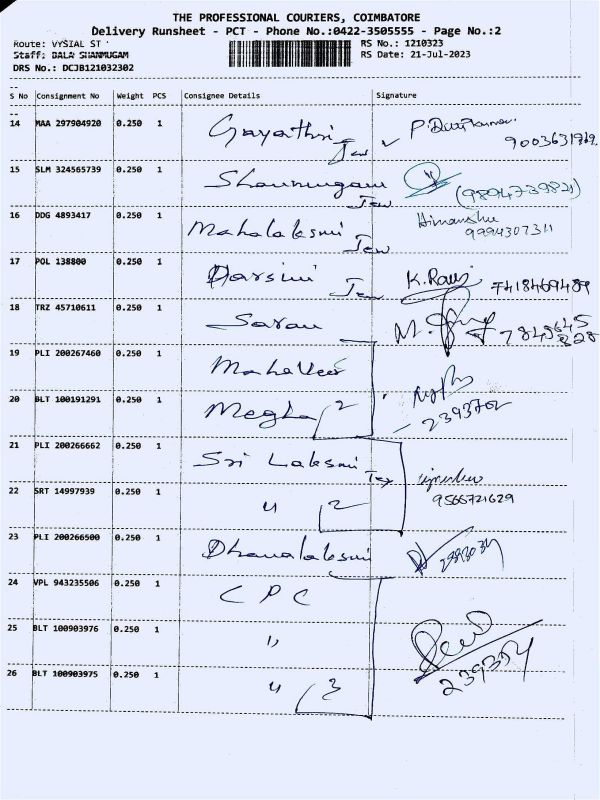 THE PROFESSIONAL COURIERS, COIMBATORE
Delivery Runsheet - PCT - Phone No.:0422-3505555 - Page No.:2
Route: VYSIAL ST
RS No.: 1210323
Staff: BALA SHANMUGAM
RS Date: 21-Jul-2023
DRS No.: DCJB121032302
S No Consignment No Weight PCS Consignee Details Signature
14 MAA 297904920 0.250 1 Gayathri
Jew
15 SLM 324565739 0.250 1 Shanmugam (9894739821)
Jew
16 DDG 4893417 0.250 1 Mahalaksmi Jew Himanshu
9994307311
17 POL 138800 0.250 1 Darsini Jew K. Ravi 7418469489
18 TRZ 45710611 0.250 1 Saran
19 PLI 200267460 0.250 1 Mahaveer
20 BLT 100191291 0.250 1 Megha 2 2393702
21 PLI 200266662 0.250 1 Sri Laksmi
22 SRT 14997939 0.250 1 " 2 9566721629
23 PLI 200266500 0.250 1 Dhanalaksmi
24 VPL 943235506 0.250 1 CPC
25 BLT 100903976 0.250 1 "
26 BLT 100903975 0.250 1 " 3